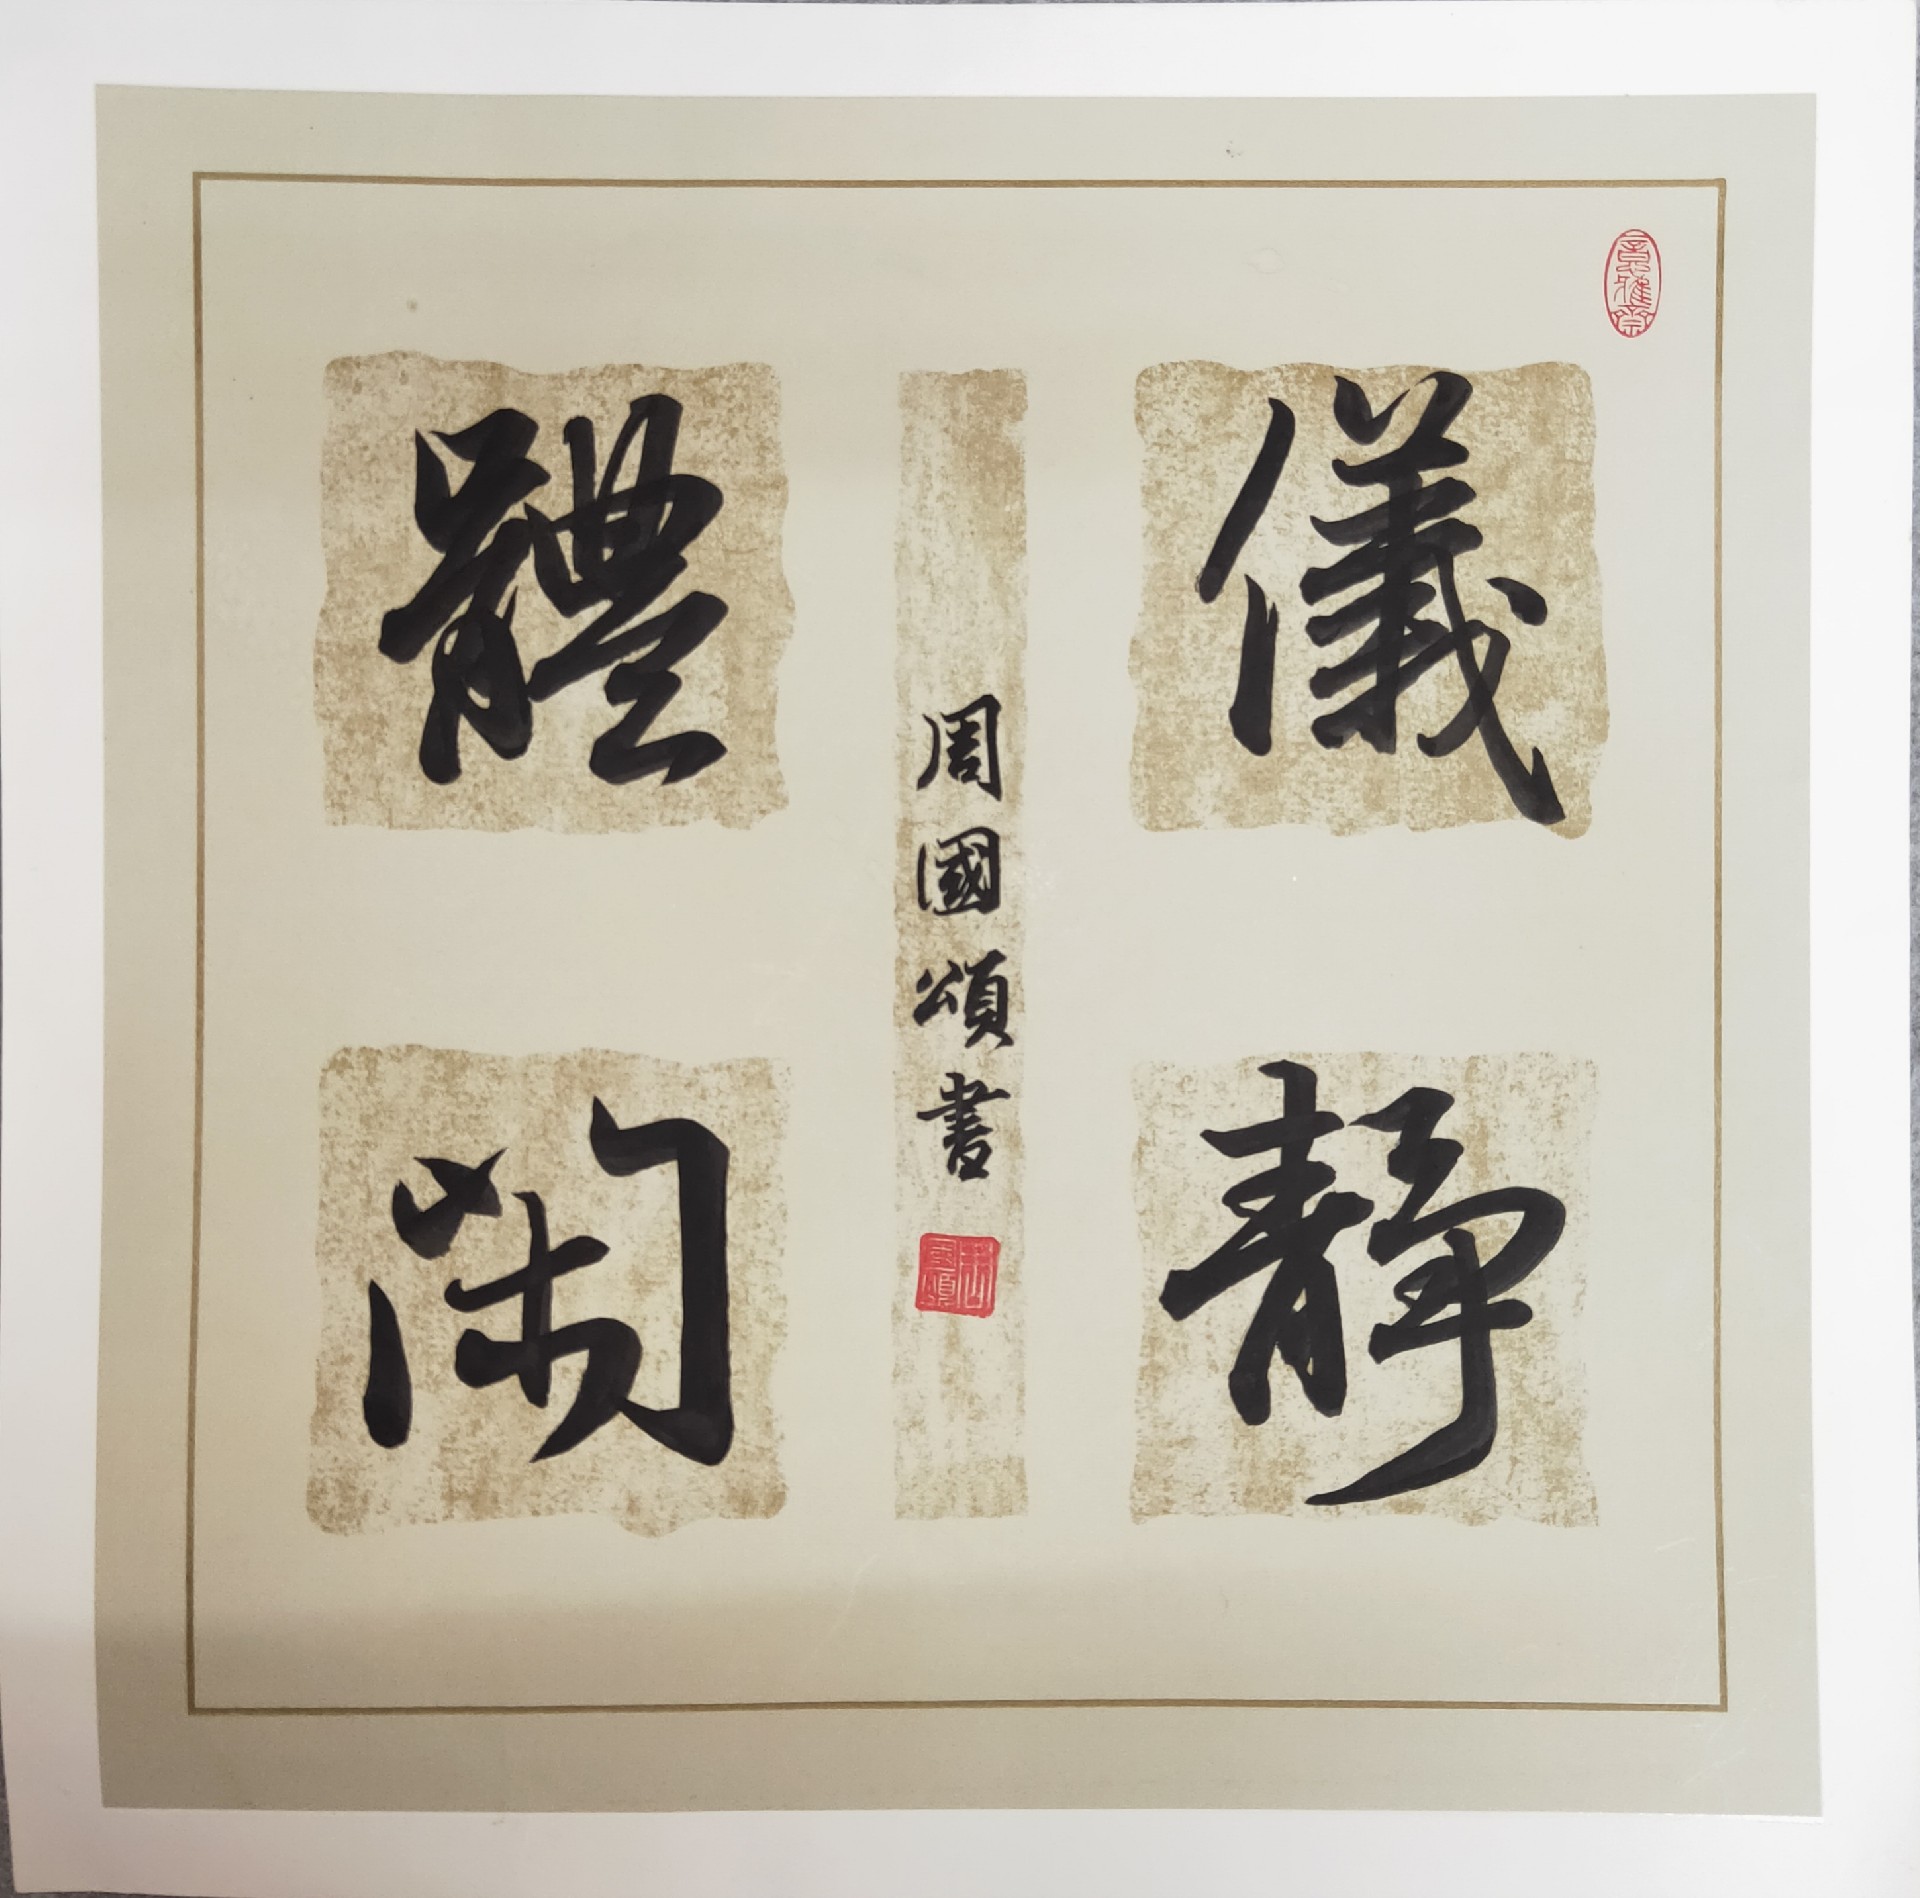 儀靜
體閑
周國頌書
周國頌